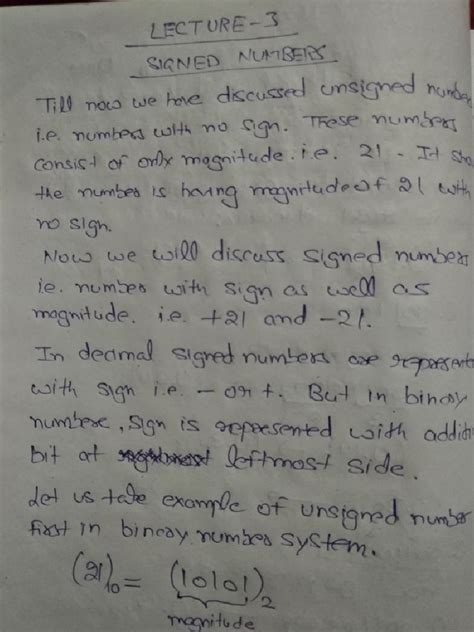 LECTURE-3
SIGNED NUMBERS
Till now we have discussed unsigned number
i.e. numbers with no sign. These numbers
consist of only magnitude. i.e. 21. It sho
the number is having magnitude of 21 with
no sign.
Now we will discuss signed numbers
ie. number with sign as well as
magnitude. i.e. +21 and -21.
In decimal signed numbers are represente
with sign i.e. - or +. But in binary
numbere, sign is represented with additi
bit at leftmost side.
Let us take example of unsigned number
first in binary number system.
(21)10 = (10101)2
magnitude